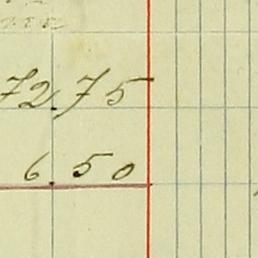 72.75
6.50